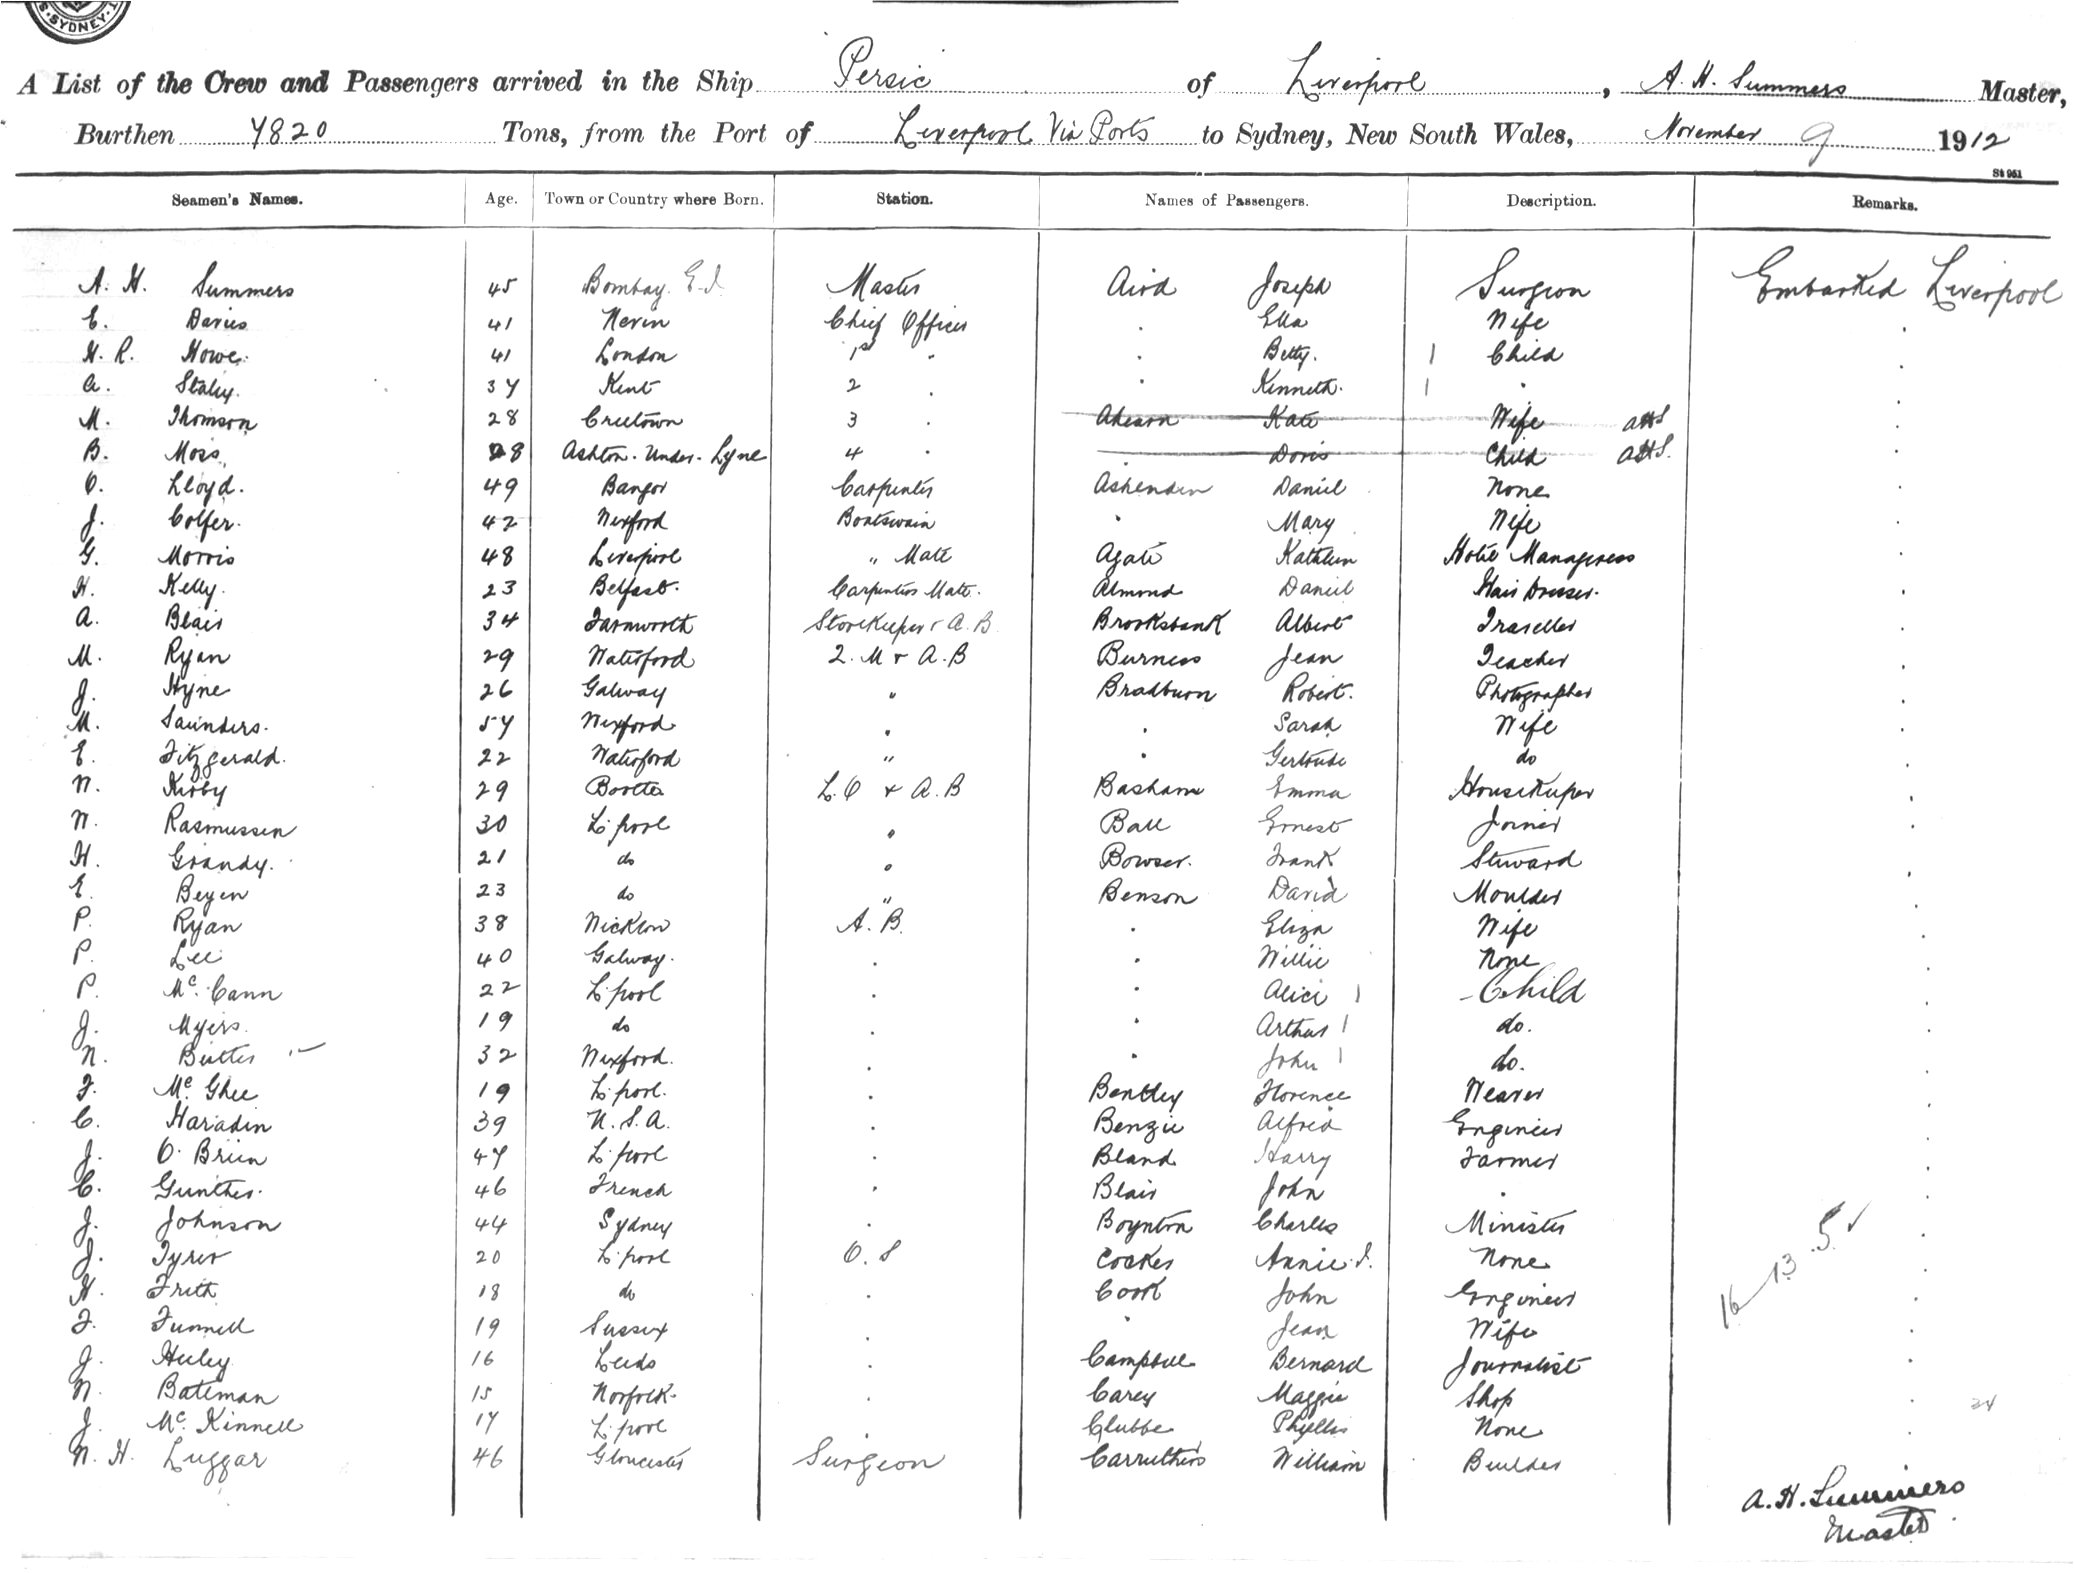 SYDNEY
A List of the Crew and Passengers arrived in the Ship Persic of Liverpool, A. H. Summers Master,
Burthen 7820 Tons, from the Port of Liverpool Via Ports to Sydney, New South Wales, November 9 1912
St 951
Seamen's Names. Age. Town or Country where Born. Station. Names of Passengers. Description. Remarks.
A. H. Summers 45 Bombay E.I. Master Aird Joseph Surgeon Embarked Liverpool
E. Davies 41 Nevin Chief Officer . Ella Wife .
H. R. Howe. 41 London 1st . . Betty. 1 Child .
A. Staley. 37 Kent 2 . . Kenneth. 1 . .
M. Thomson 28 Creetown 3 . Kate Wife AHS .
B. Moss. 28 Ashton-Under-Lyne 4 . . Doris Child AHS. .
O. Lloyd. 49 Bangor Carpenter Ashenden Daniel None .
J. Colfer. 42 Wexford Boatswain . Mary Wife .
G. Morris 48 Liverpool " Mate Agate Kathleen Hotel Manageress .
H. Kelly. 23 Belfast. Carpenters Mate. Almond Daniel Hair Dresser. .
A. Blair 34 Farnworth Storekeeper & A.B. Brooksbank Albert Traveller .
M. Ryan 29 Waterford Q. M & A.B Burness Jean Teacher .
J. Hyne 26 Galway " Bradburn Robert. Photographer .
M. Saunders. 57 Wexford " . Sarah Wife .
E. Fitzgerald. 22 Waterford " . Gertrude do .
W. Kirby 29 Bootle L.O & A.B Basham Emma Housekeeper .
W. Rasmussen 30 L'pool " Ball Ernest Joiner .
H. Grandy. 21 do " Bowser. Frank Steward .
E. Beyen 23 do " Benson David Moulder .
P. Ryan 38 Wicklow A.B. . Eliza Wife .
P. Lee 40 Galway. . . Willie None .
P. McCann 22 L'pool . . Alice 1 Child .
J. Myers. 19 do . . Arthur 1 do. .
W. Butler 32 Wexford. . . John 1 do. .
F. McGhee 19 L'pool. . Bentley Florence Weaver .
C. Haradin 39 U.S.A. . Benzie Alfred Engineer .
J. O'Brien 47 L'pool . Bland Harry Farmer .
C. Gunther. 46 French . Blair John . .
J. Johnson 44 Sydney . Boynton Charles Minister .
J. Tyrer 20 L'pool O.S Cocker Annie. None .
H. Frith 18 do . Cook John Engineer 16 13 5 ✓
F. Funnell 19 Sussex . . Jean Wife .
J. Heeley 16 Leeds . Campbell Bernard Journalist .
W. Bateman 15 Norfolk. . Carey Maggie Shop .
J. McKinnell 17 L'pool . Clubbe Phyllis None .
W. H. Luggar 46 Gloucester Surgeon Carruthers William Builder
A. H. Summers
Master.